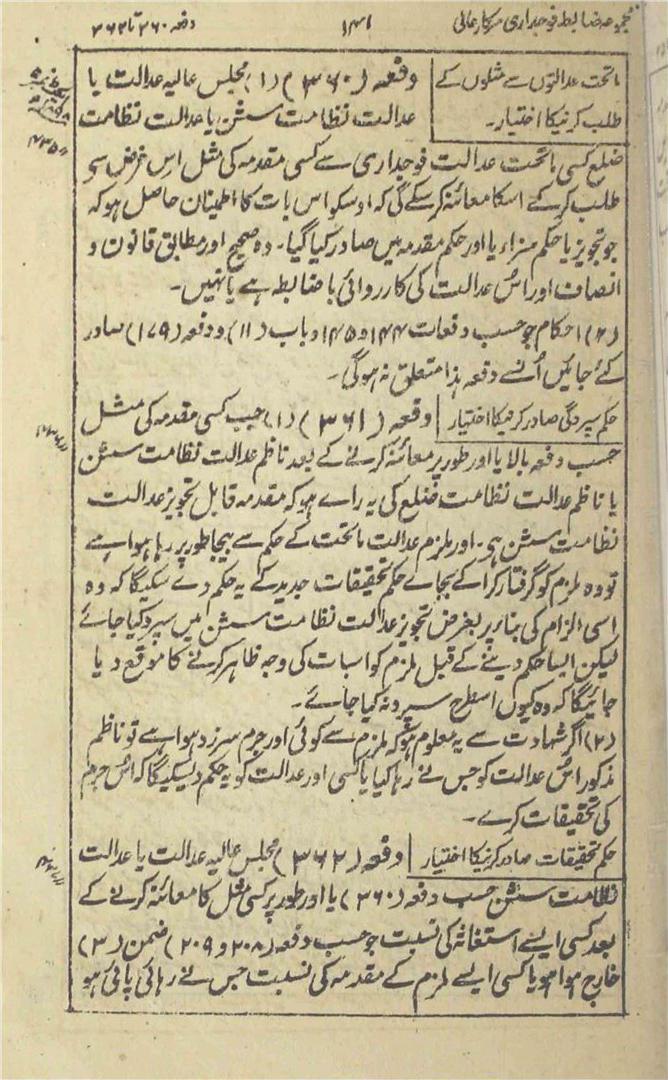 مجموعہ ضابطہ فوجداری سرکار عالی ۱۴۱ دفعہ ۳۶۰ تا ۳۶۲
ماتحت عدالتوں سے مثلوں کے
طلب کرنیکا اختیار۔
دفعہ (۳۶۰) (۱) مجلس عالیہ عدالت یا
عدالت نظامت سشن یا عدالت نظامت
ضلع کسی ماتحت عدالت فوجداری سے کسی مقدمہ کی مثل اس غرض سے
طلب کر کے اسکا معائنہ کر سکے گی کہ اوسکو اس بات کا اطمینان حاصل ہو کہ
جو تجویز یا حکم سزا، یا اور حکم مقدمہ میں صادر کیا گیا۔ وہ صحیح اور مطابق قانون و
انصاف اور اس عدالت کی کارروائی باضابطہ ہے یا نہیں۔
(۲) احکام جو حسب دفعات ۱۴۴ و ۱۴۵ و باب (۱۱) و دفعہ (۱۷۹) صادر
کئے جائیں اُنسے دفعہ ہذا متعلق نہ ہوگی۔
حکم سپردگی صادر کرنیکا اختیار دفعہ (۳۶۱) (۱) جب کسی مقدمہ کی مثل
حسب دفعہ بالا یا اور طور پر معائنہ کرنے کے بعد ناظم عدالت نظامت سشن
یا ناظم عدالت نظامت ضلع کی یہ رائے ہو کہ مقدمہ قابل تجویز عدالت
نظامت سشن ہی۔ اور ملزم عدالت ماتحت کے حکم سے بیجا طور پر رہا ہوا ہے
تو وہ ملزم کو گرفتار کرا کے بجائے حکم تحقیقات جدید کے یہ حکم دے سکیگا کہ وہ
اسی الزام کی بناء پر بغرض تجویز عدالت نظامت سشن میں سپرد کیا جائے
لیکن ایسا حکم دینے کے قبل ملزم کو اسبات کی وجہ ظاہر کرنے کا موقع دیا
جائیگا کہ وہ کیوں اسطرح سپرد نہ کیا جائے۔
(۲) اگر شہادت سے یہ معلوم ہو کہ ملزم سے کوئی اور جرم سرزد ہوا ہے تو ناظم
مذکور اس عدالت کو جس نے رہا کیا یا کسی اور عدالت کو یہ حکم دیسکیگا کہ اس جرم
کی تحقیقات کرے۔
حکم تحقیقات صادر کرنیکا اختیار دفعہ (۳۶۲) مجلس عالیہ عدالت یا عدالت
نظامت سشن حسب دفعہ (۳۶۰) یا اور طور پر کسی مثل کا معائنہ کرنے کے
بعد کسی ایسے استغاثہ کی نسبت جو حسب دفعہ (۲۰۸ و ۲۰۹) ضمن (۳)
خارج ہوا ہو یا کسی ایسے ملزم کے مقدمہ کی نسبت جس نے رہائی پائی ہو